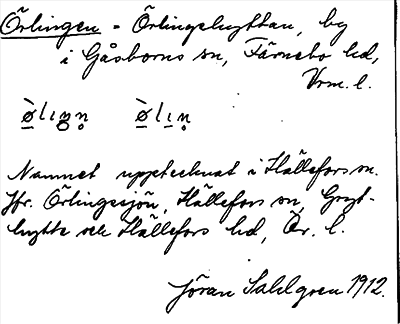 Örlingen = Örlingshyttan, by
i Gåsborns sn, Färnebo hd,
Vrm. l.
Namnet upptecknat i Hällefors sn.
Jfr. Örlingesjön, Hällefors sn, Gryt-
hytte och Hällefors hd, Ör. l.
Jöran Sahlgren 1912.